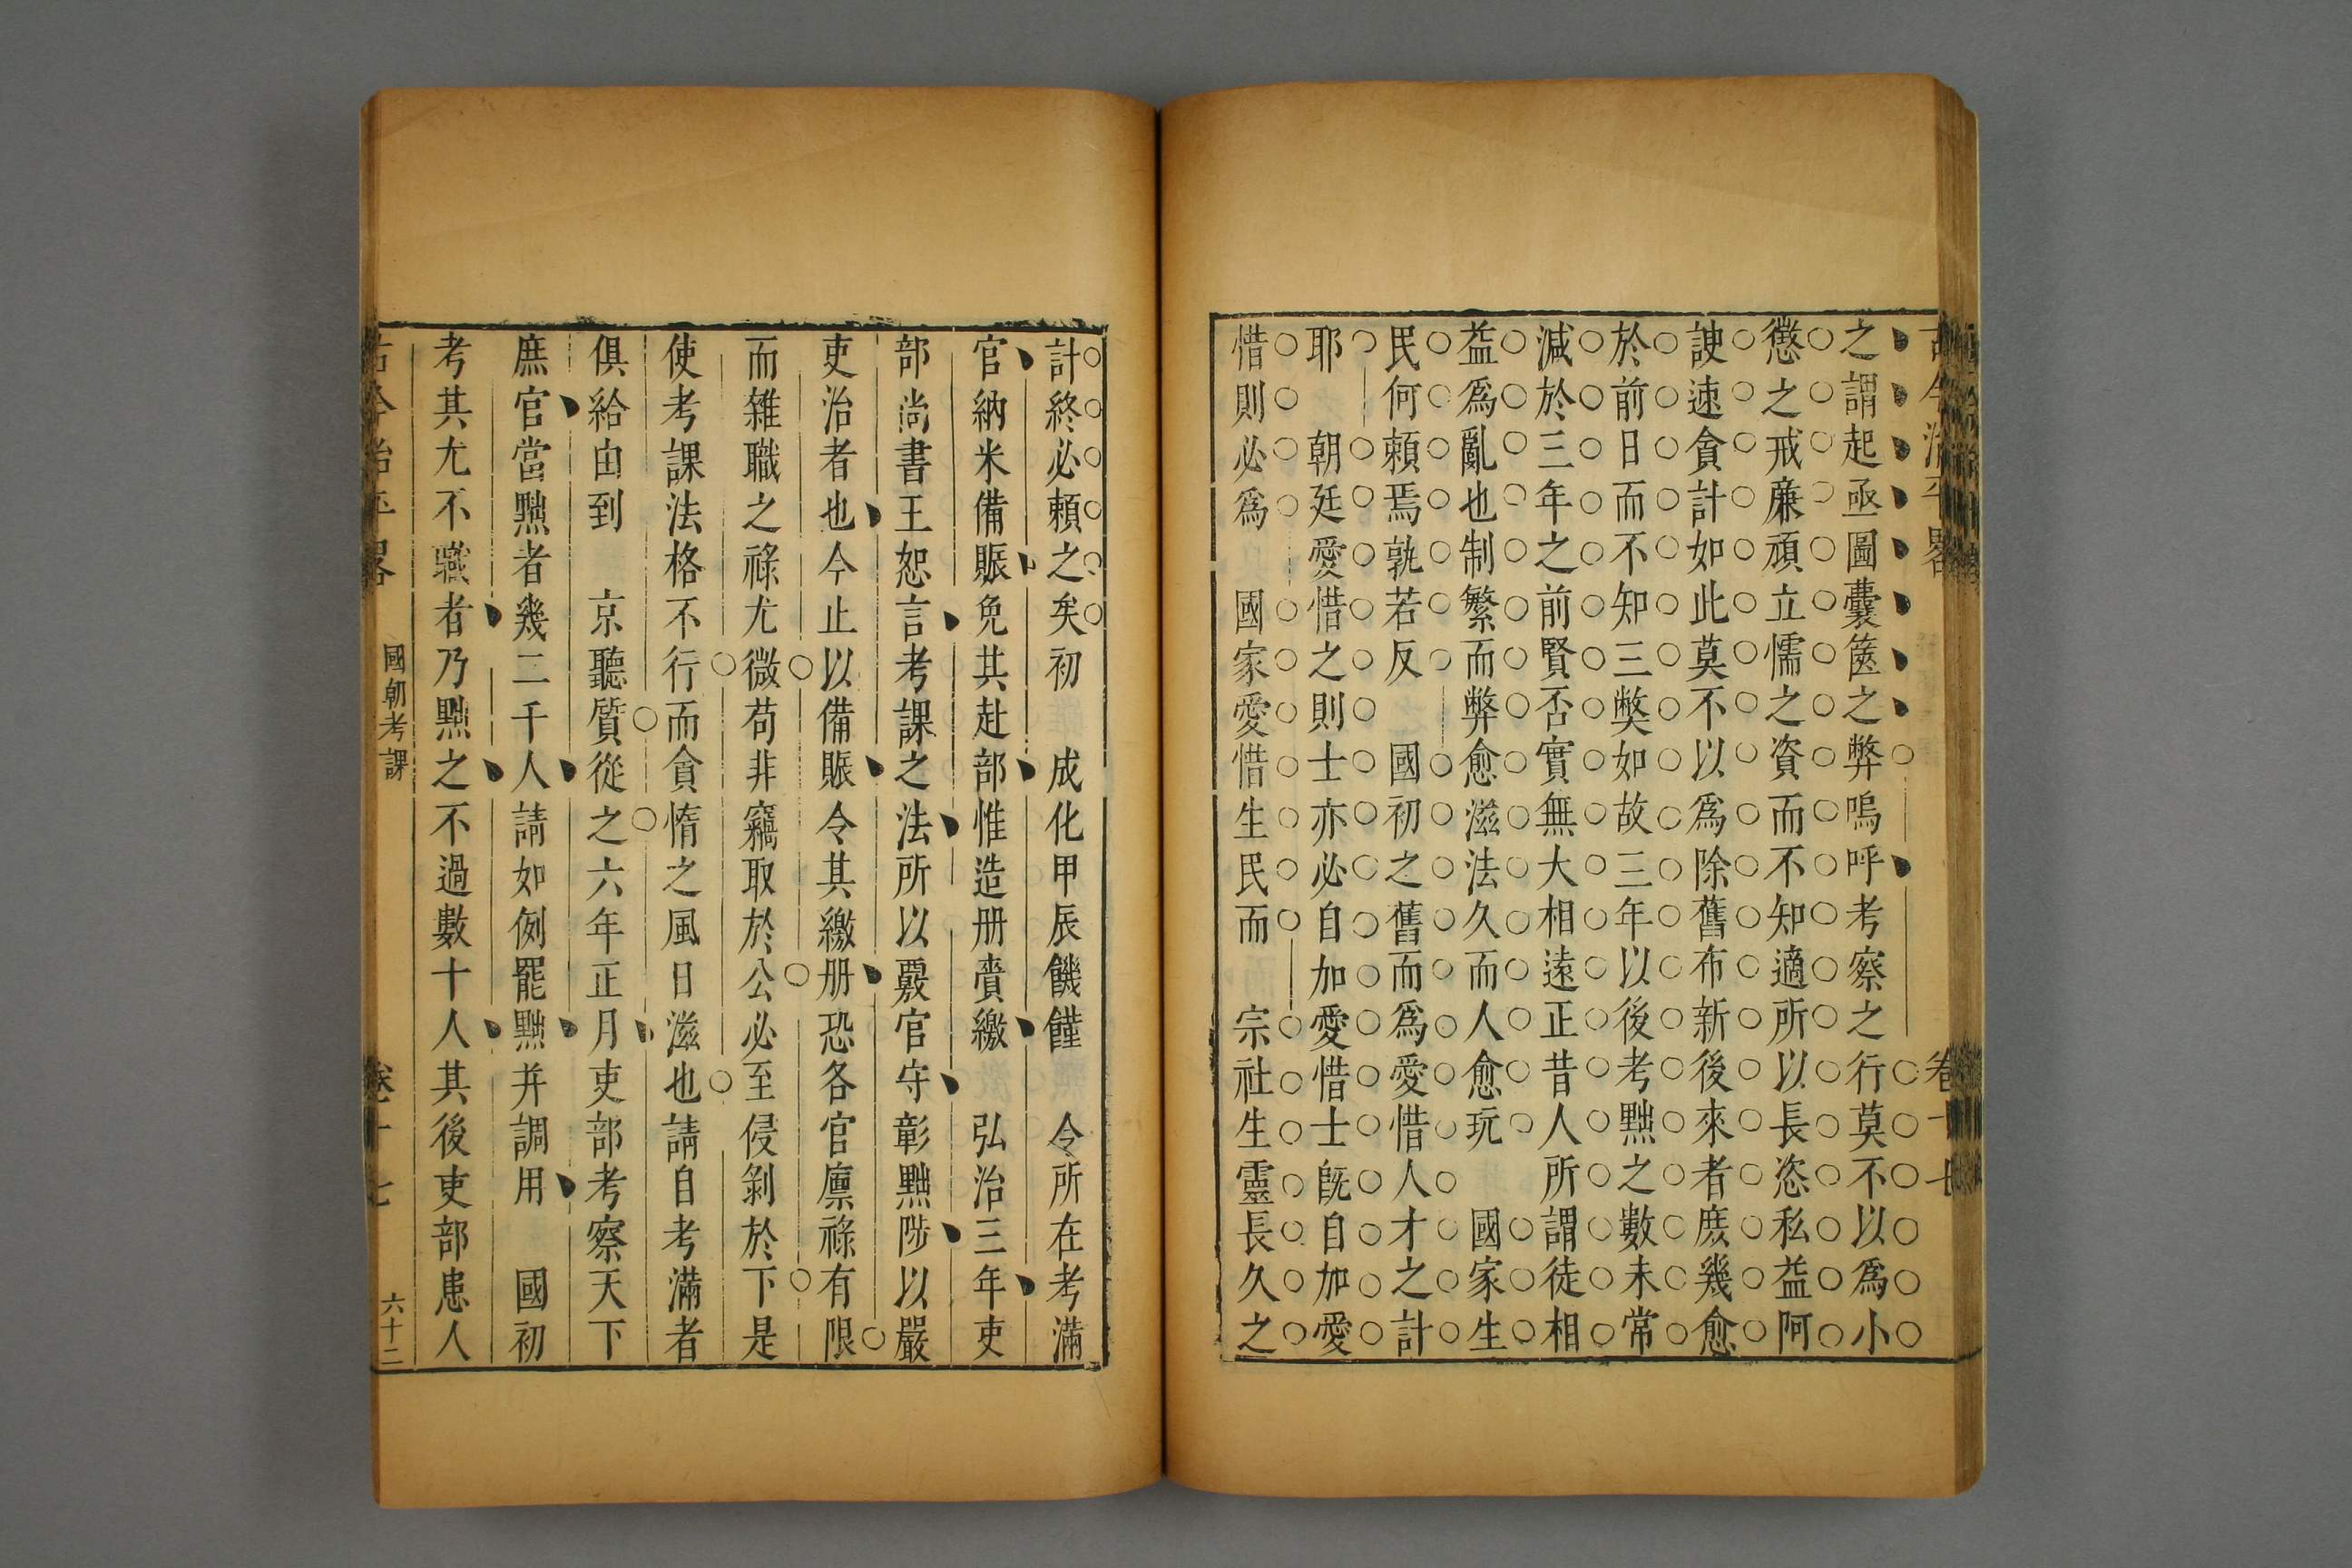 古今治平畧 卷十七
之謂起亟圖囊篋之弊嗚呼考察之行莫不以爲小
懲之戒廉頑立懦之資而不知適所以長恣私益阿
諛速貪計如此莫不以爲除舊布新後來者庻幾愈
於前日而不知三獘如故三年以後考黜之數未常
減於三年之前賢否實無大相遠正昔人所謂徒相
益爲亂也制繁而弊愈滋法久而人愈玩 國家生
民何頼焉孰若反 國初之舊而爲愛惜人才之計
耶 朝廷愛惜之則士亦必自加愛惜士旣自加愛
惜則必爲 國家愛惜生民而 宗社生靈長久之
計終必頼之矣初 成化甲辰饑饉 令所在考滿
官納米備賑免其赴部惟造册賫繳 弘治三年吏
部尚書王恕言考課之法所以覈官守彰黜陟以嚴
吏治者也今止以備賑令其繳册恐各官廪祿有限
而雜職之祿尤微苟非竊取於公必至侵剝於下是
使考課法格不行而貪惰之風日滋也請自考滿者
俱給由到 京聽質從之六年正月吏部考察天下
庶官當黜者幾二千人請如例罷黜并調用 國初
考其尤不職者乃黜之不過數十人其後吏部恚人
古今治平畧 國朝考課 卷十七 六十二